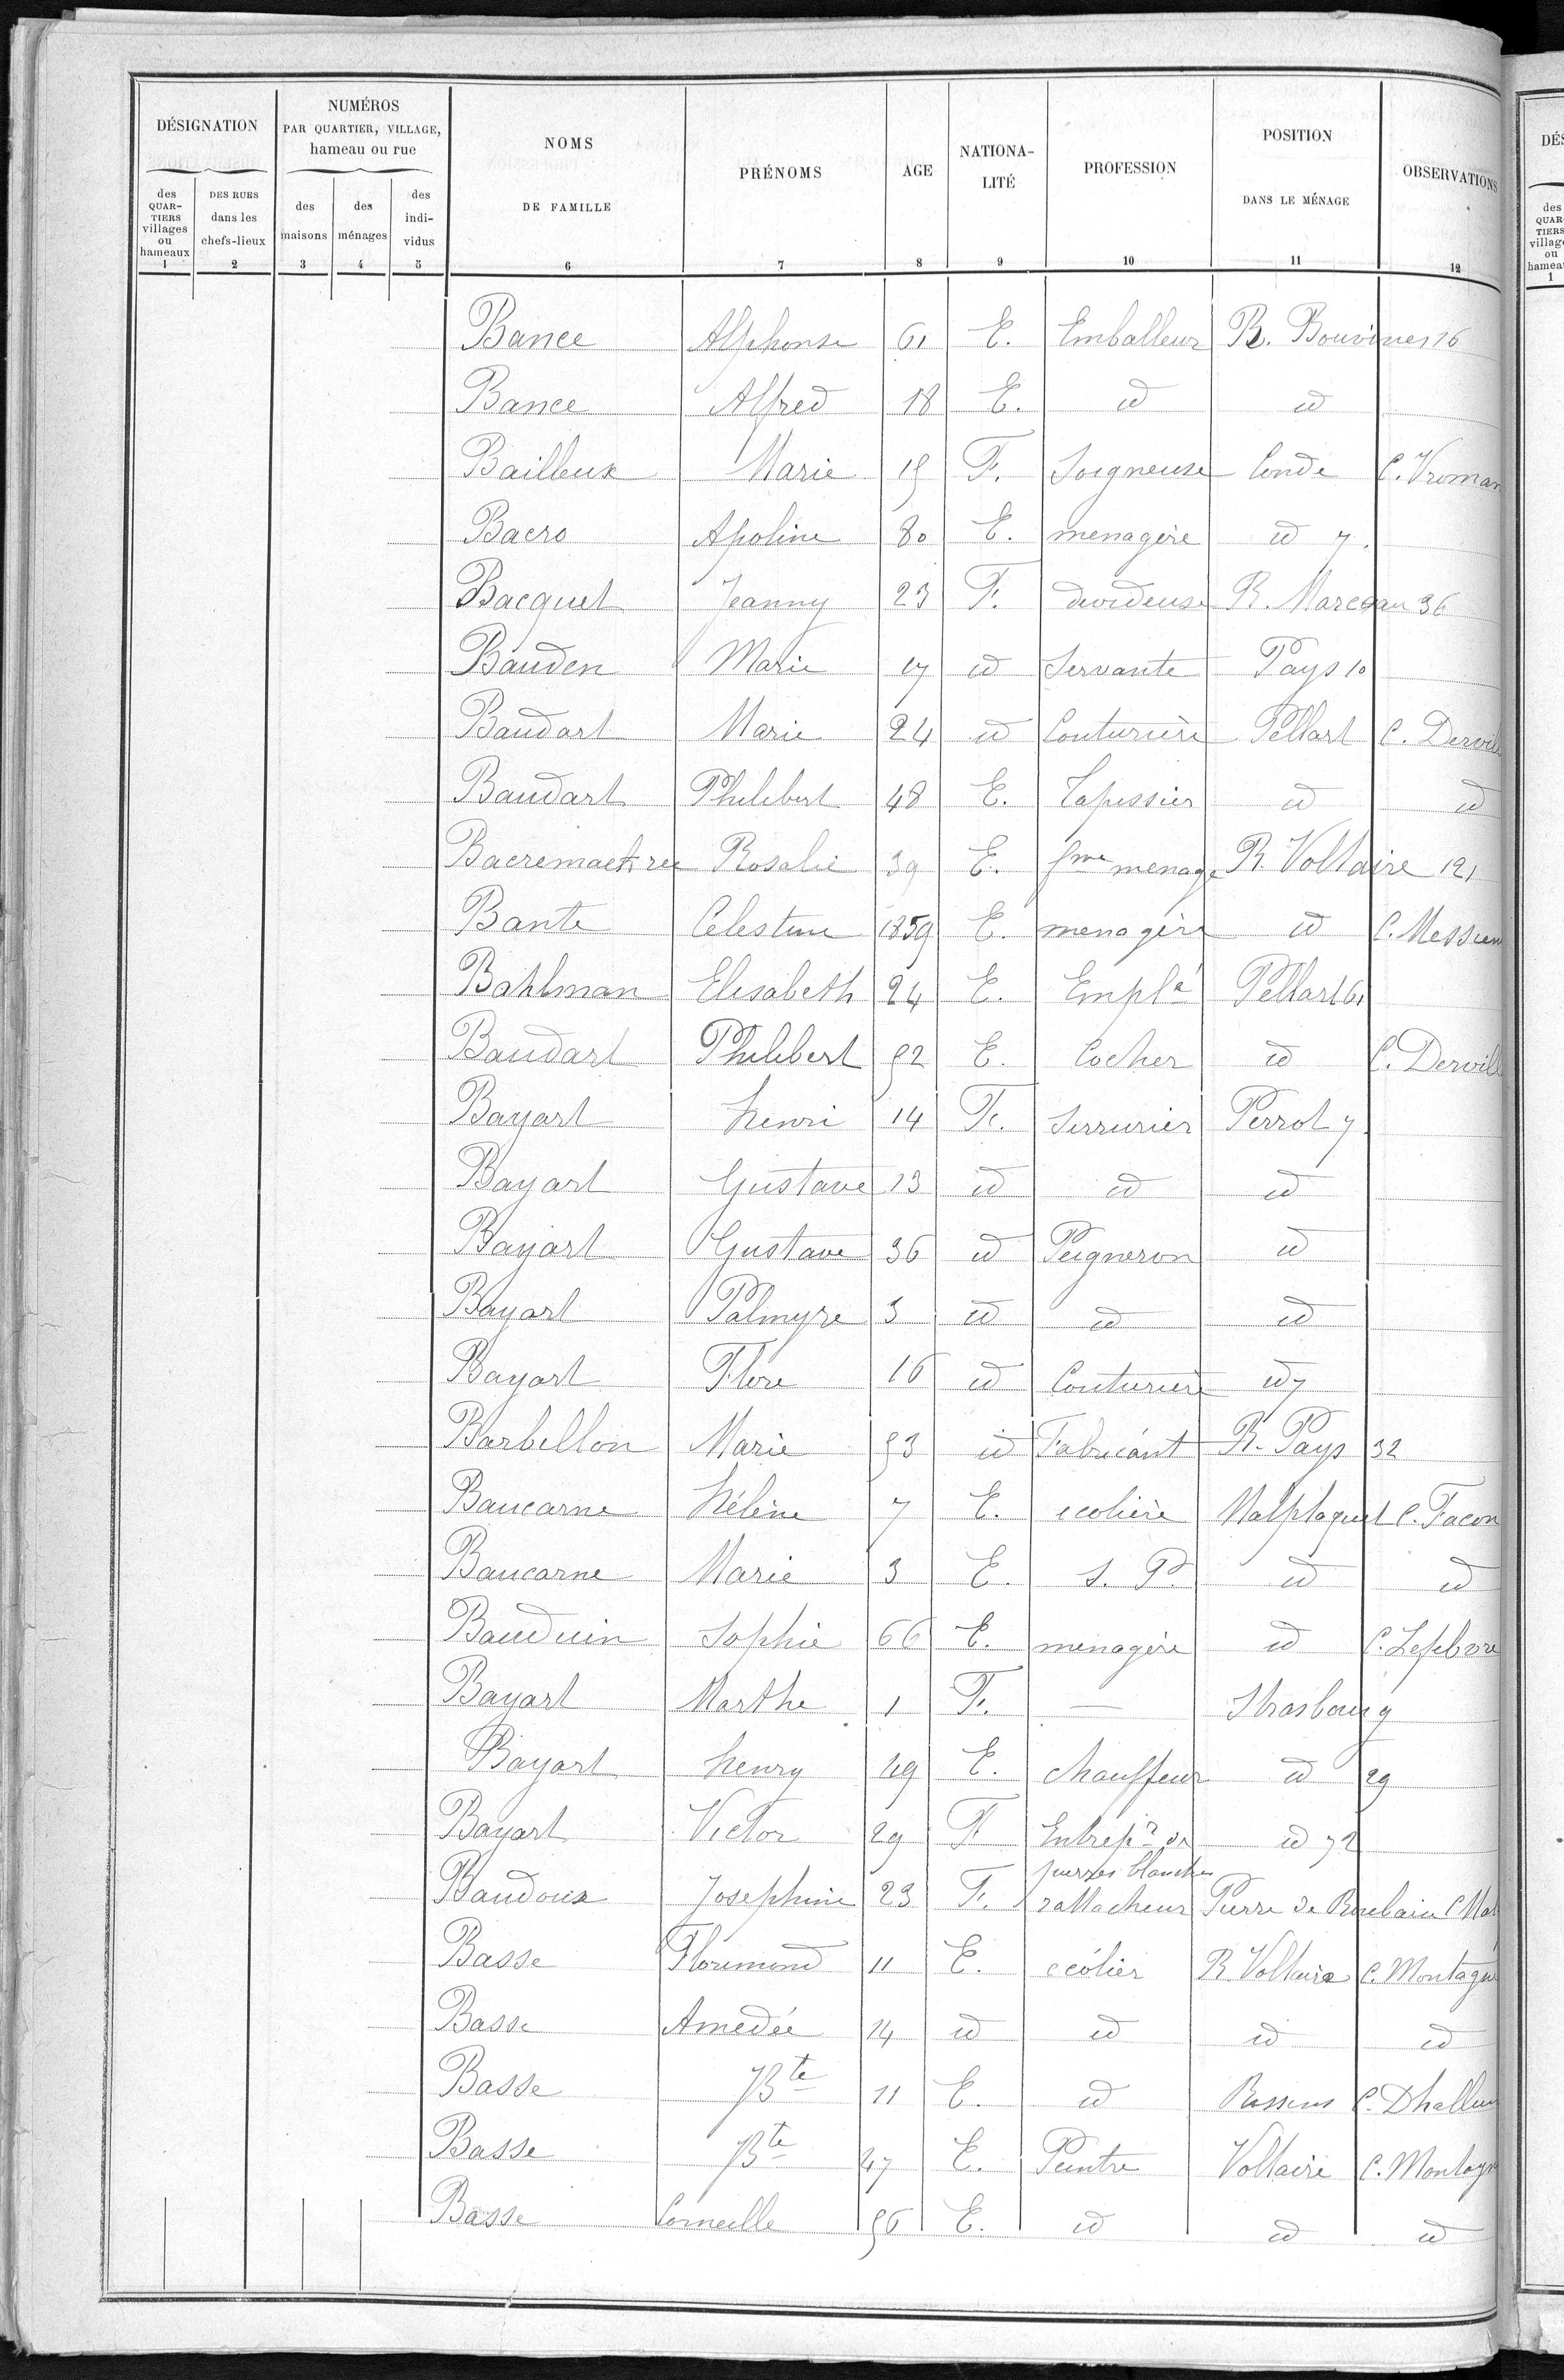 DÉSIGNATION
NUMÉROS
PAR QUARTIER, VILLAGE,
hameau ou rue
NOMS
DE FAMILLE
PRÉNOMS
AGE
NATIONA-
LITÉ
PROFESSION
POSITION
DANS LE MÉNAGE
OBSERVATIONS
des
QUAR-
TIERS
villages
ou
hameaux
DES RUES
dans les
chefs-lieux
des
maisons
des
ménages
des
indi-
vidus
1 2 3 4 5 6 7 8 9 10 11 12
Bance Alphonse 61 E. Emballeur R. Bouvines 16
Bance Alfred 18 E. id id
Bailleux Marie 15 F. Soigneuse Condé C. Vroman
Bacro Apoline 80 E. menagère id 7.
Bacquet Jeanny 23 F. devideuse R. Marceau 36
Bauden Marie 17 id Servante Pays 10
Baudart Marie 24 id Couturière Pellart C. Dervill
Baudart Philibert 48 E. Tapissier id id
Rosalie 39 E. fme menage R. Voltaire 121
Bante Celestine 1859 E. menagère id C. Messien
Bahlman Elisabeth 24 E. Emplé Pellart 61
Baudart Philibert 52 E. Cocher id C. Dervill
Bayart henri 14 F. Serrurier Perrot 7
Bayart Gustave 13 id id id
Bayart Gustave 36 id Peigneron id
Bayart Palmyre 3 id id id
Bayart Flore 16 id Couturière id 7
Barbillon Marie 53 id Fabricant R. Pays 32
Baucarne hélène 7 E. ecolière Malplaquet C. Facon
Baucarne Marie 3 E. S. P. id id
Bauduin Sophie 66 E. menagère id C. Lefebvre
Bayart Marthe 1 F. — Strasbourg
Bayart henry 49 E. chauffeur id 29
Bayart Victor 29 F Entrepr de id 72
pierres blanches
Baudoux Josephine 23 F. rattacheur Pierre de Roubaix C Mal
Basse Florimond 11 E. ecolier R. Voltaire C. Montagne
Basse Amedée 14 id id id id
Basse Bte 11 E. id C. Dhallun
Basse Bte 47 E. Peintre Voltaire C. Montagn
Basse Corneille 56 E. id id id
DÉS
des
QUAR
TIERS
village
ou
hamea
1